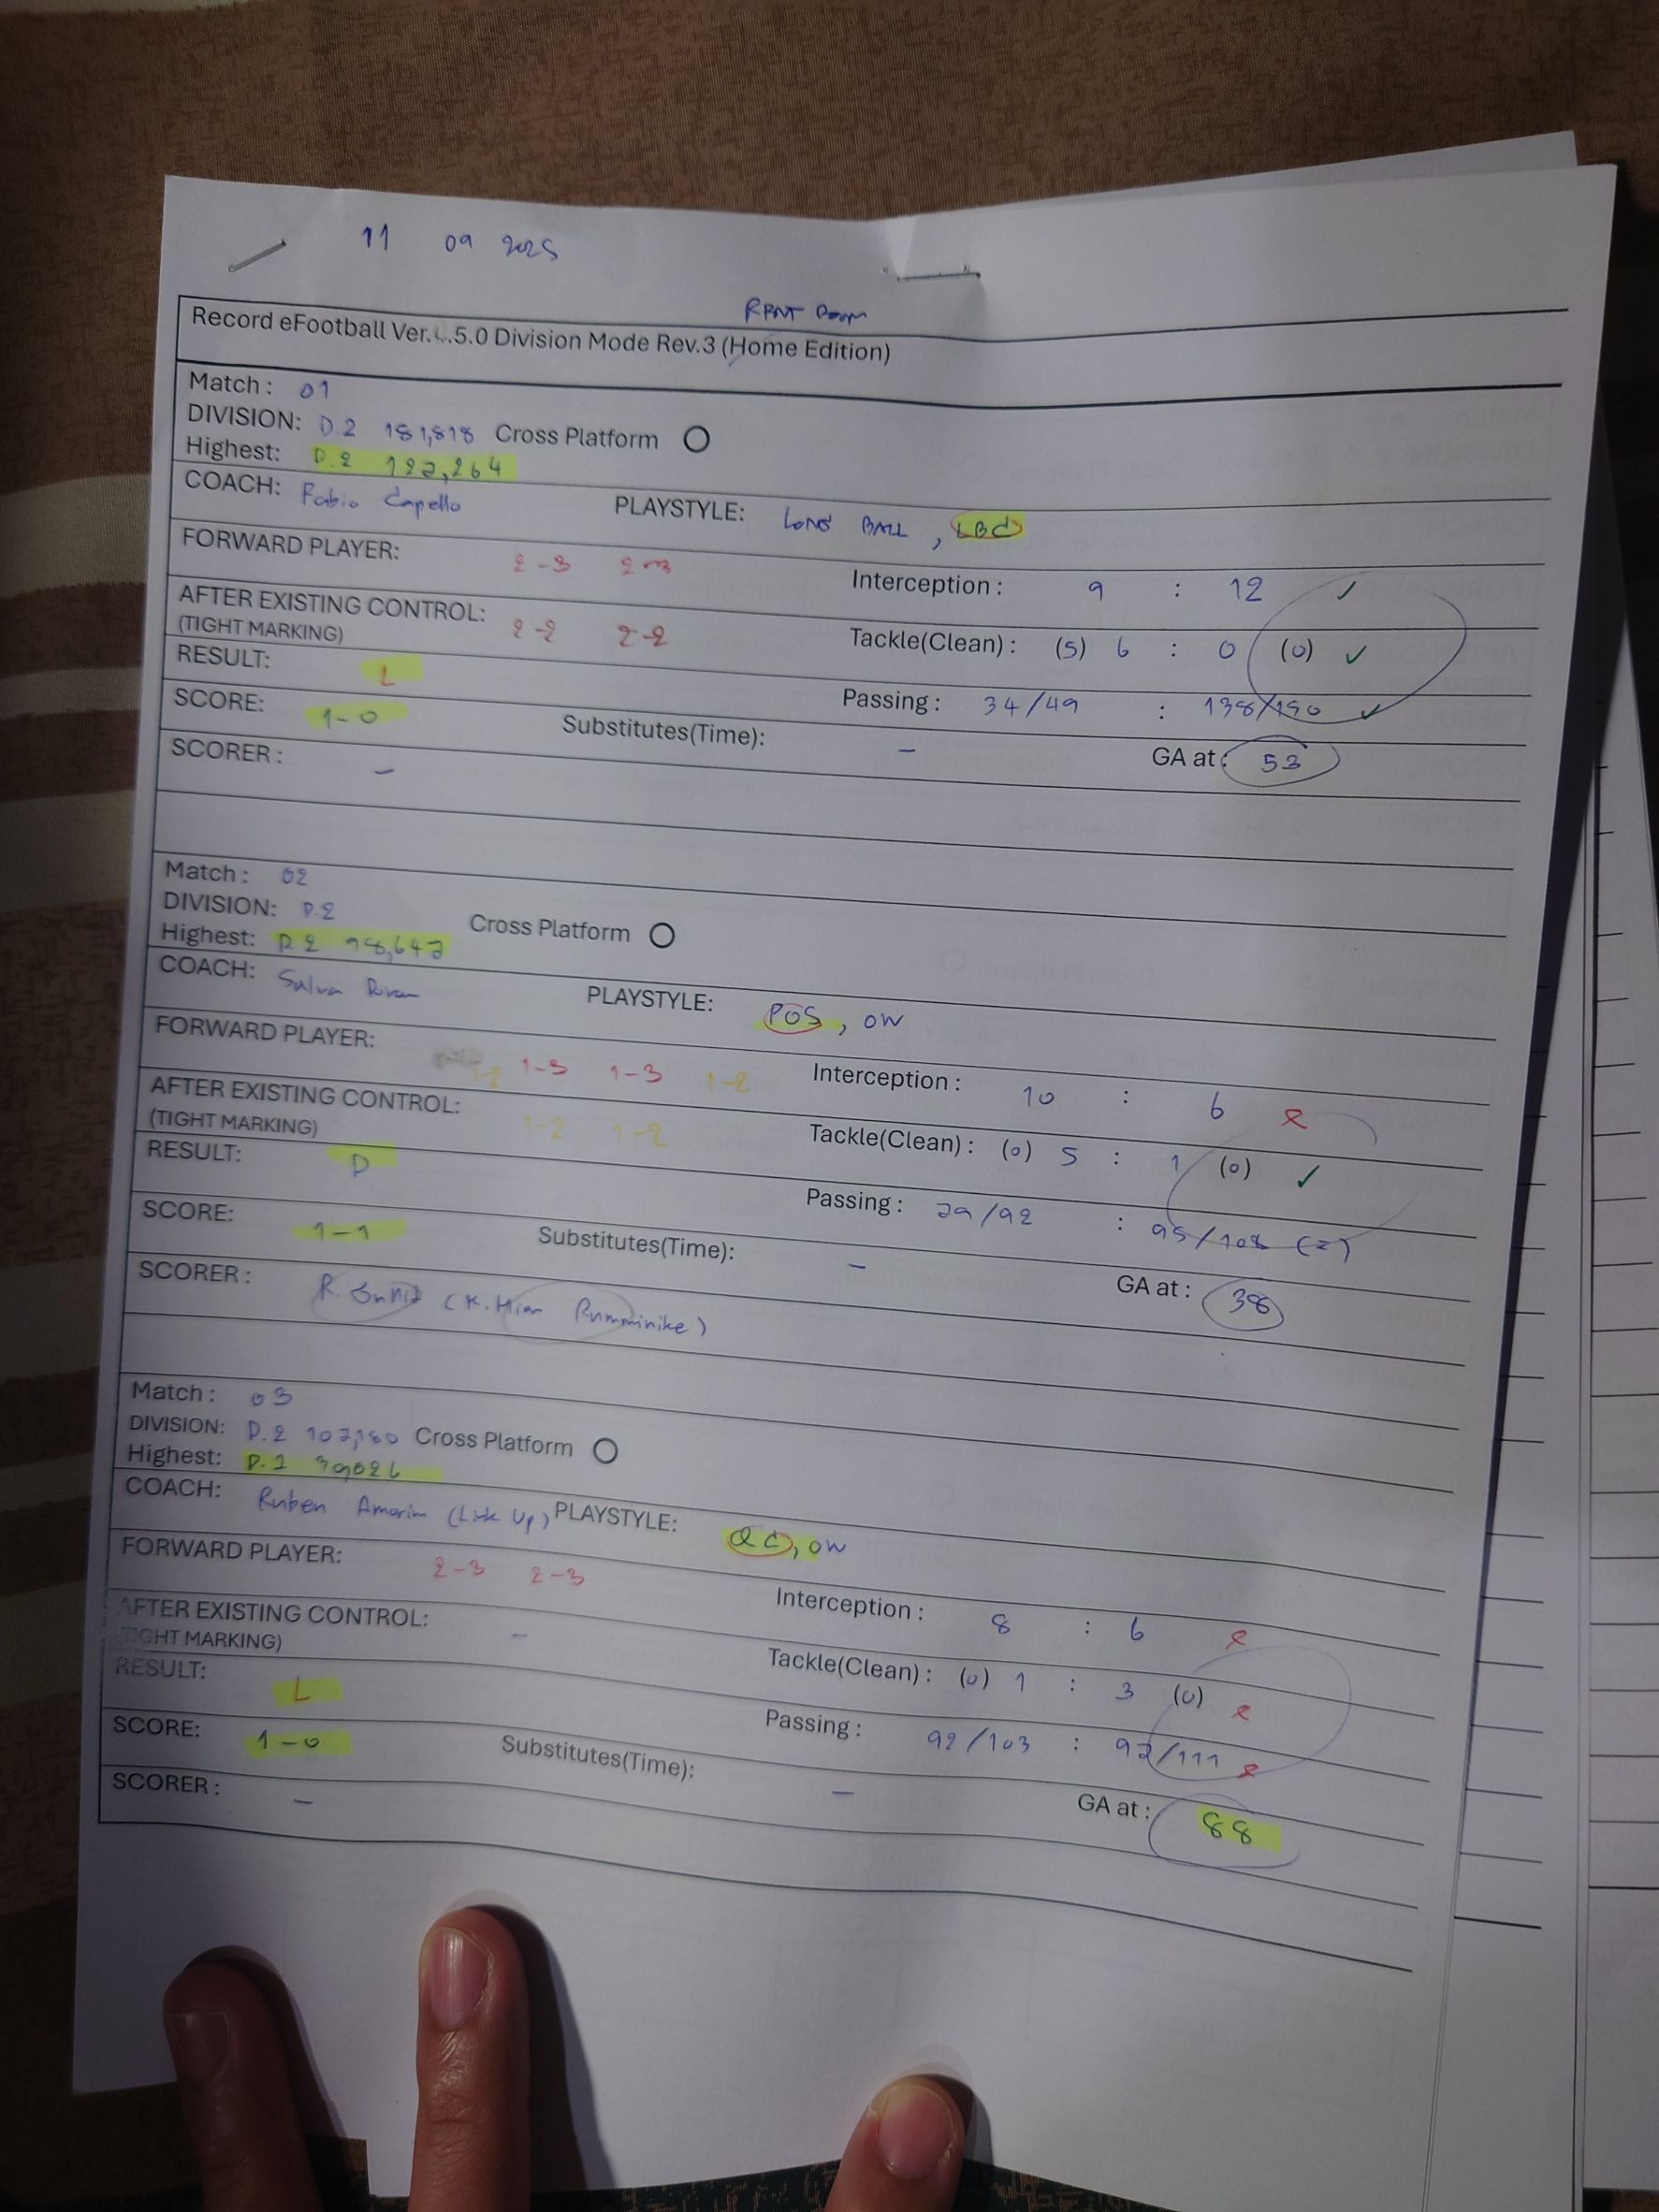 11 09 2025
RENT ROOM
Record eFootball Ver. 5.0 Division Mode Rev.3 (Home Edition)
Match : 01
DIVISION: D.2 181,818 Cross Platform
Highest: D.2 122,264
COACH: Fabio Capello PLAYSTYLE: LONG BALL , LBC
FORWARD PLAYER: 2-3 2-3 Interception : 9 : 12 ✓
AFTER EXISTING CONTROL: 2-2 2-2
(TIGHT MARKING) Tackle(Clean) : (5) 6 : 0 (0) ✓
RESULT: L Passing : 34/49 : 138/150 ✓
SCORE: 1-0 Substitutes(Time): - GA at : 53
SCORER : -
Match : 02
DIVISION: D.2 Cross Platform
Highest: D.2 98,642
COACH: Salva PLAYSTYLE: POS , OW
FORWARD PLAYER: 1-2 1-3 1-3 1-2 Interception : 10 : 6
AFTER EXISTING CONTROL: 1-2 1-2
(TIGHT MARKING) Tackle(Clean) : (0) 5 : 1 (0) ✓
RESULT: D Passing : 79/92 : 95/108 (=)
SCORE: 1-1 Substitutes(Time): - GA at : 38
SCORER : R. (K.
Match : 03
DIVISION: D.2 107,180 Cross Platform
Highest: D.1
COACH: Ruben Amorim (Link Up) PLAYSTYLE: QC, OW
FORWARD PLAYER: 2-3 2-3 Interception : 8 : 6
AFTER EXISTING CONTROL: -
(TIGHT MARKING) Tackle(Clean) : (0) 1 : 3 (0)
RESULT: L Passing : 92/103 : 97/111
SCORE: 1-0 Substitutes(Time): - GA at : 88
SCORER : -